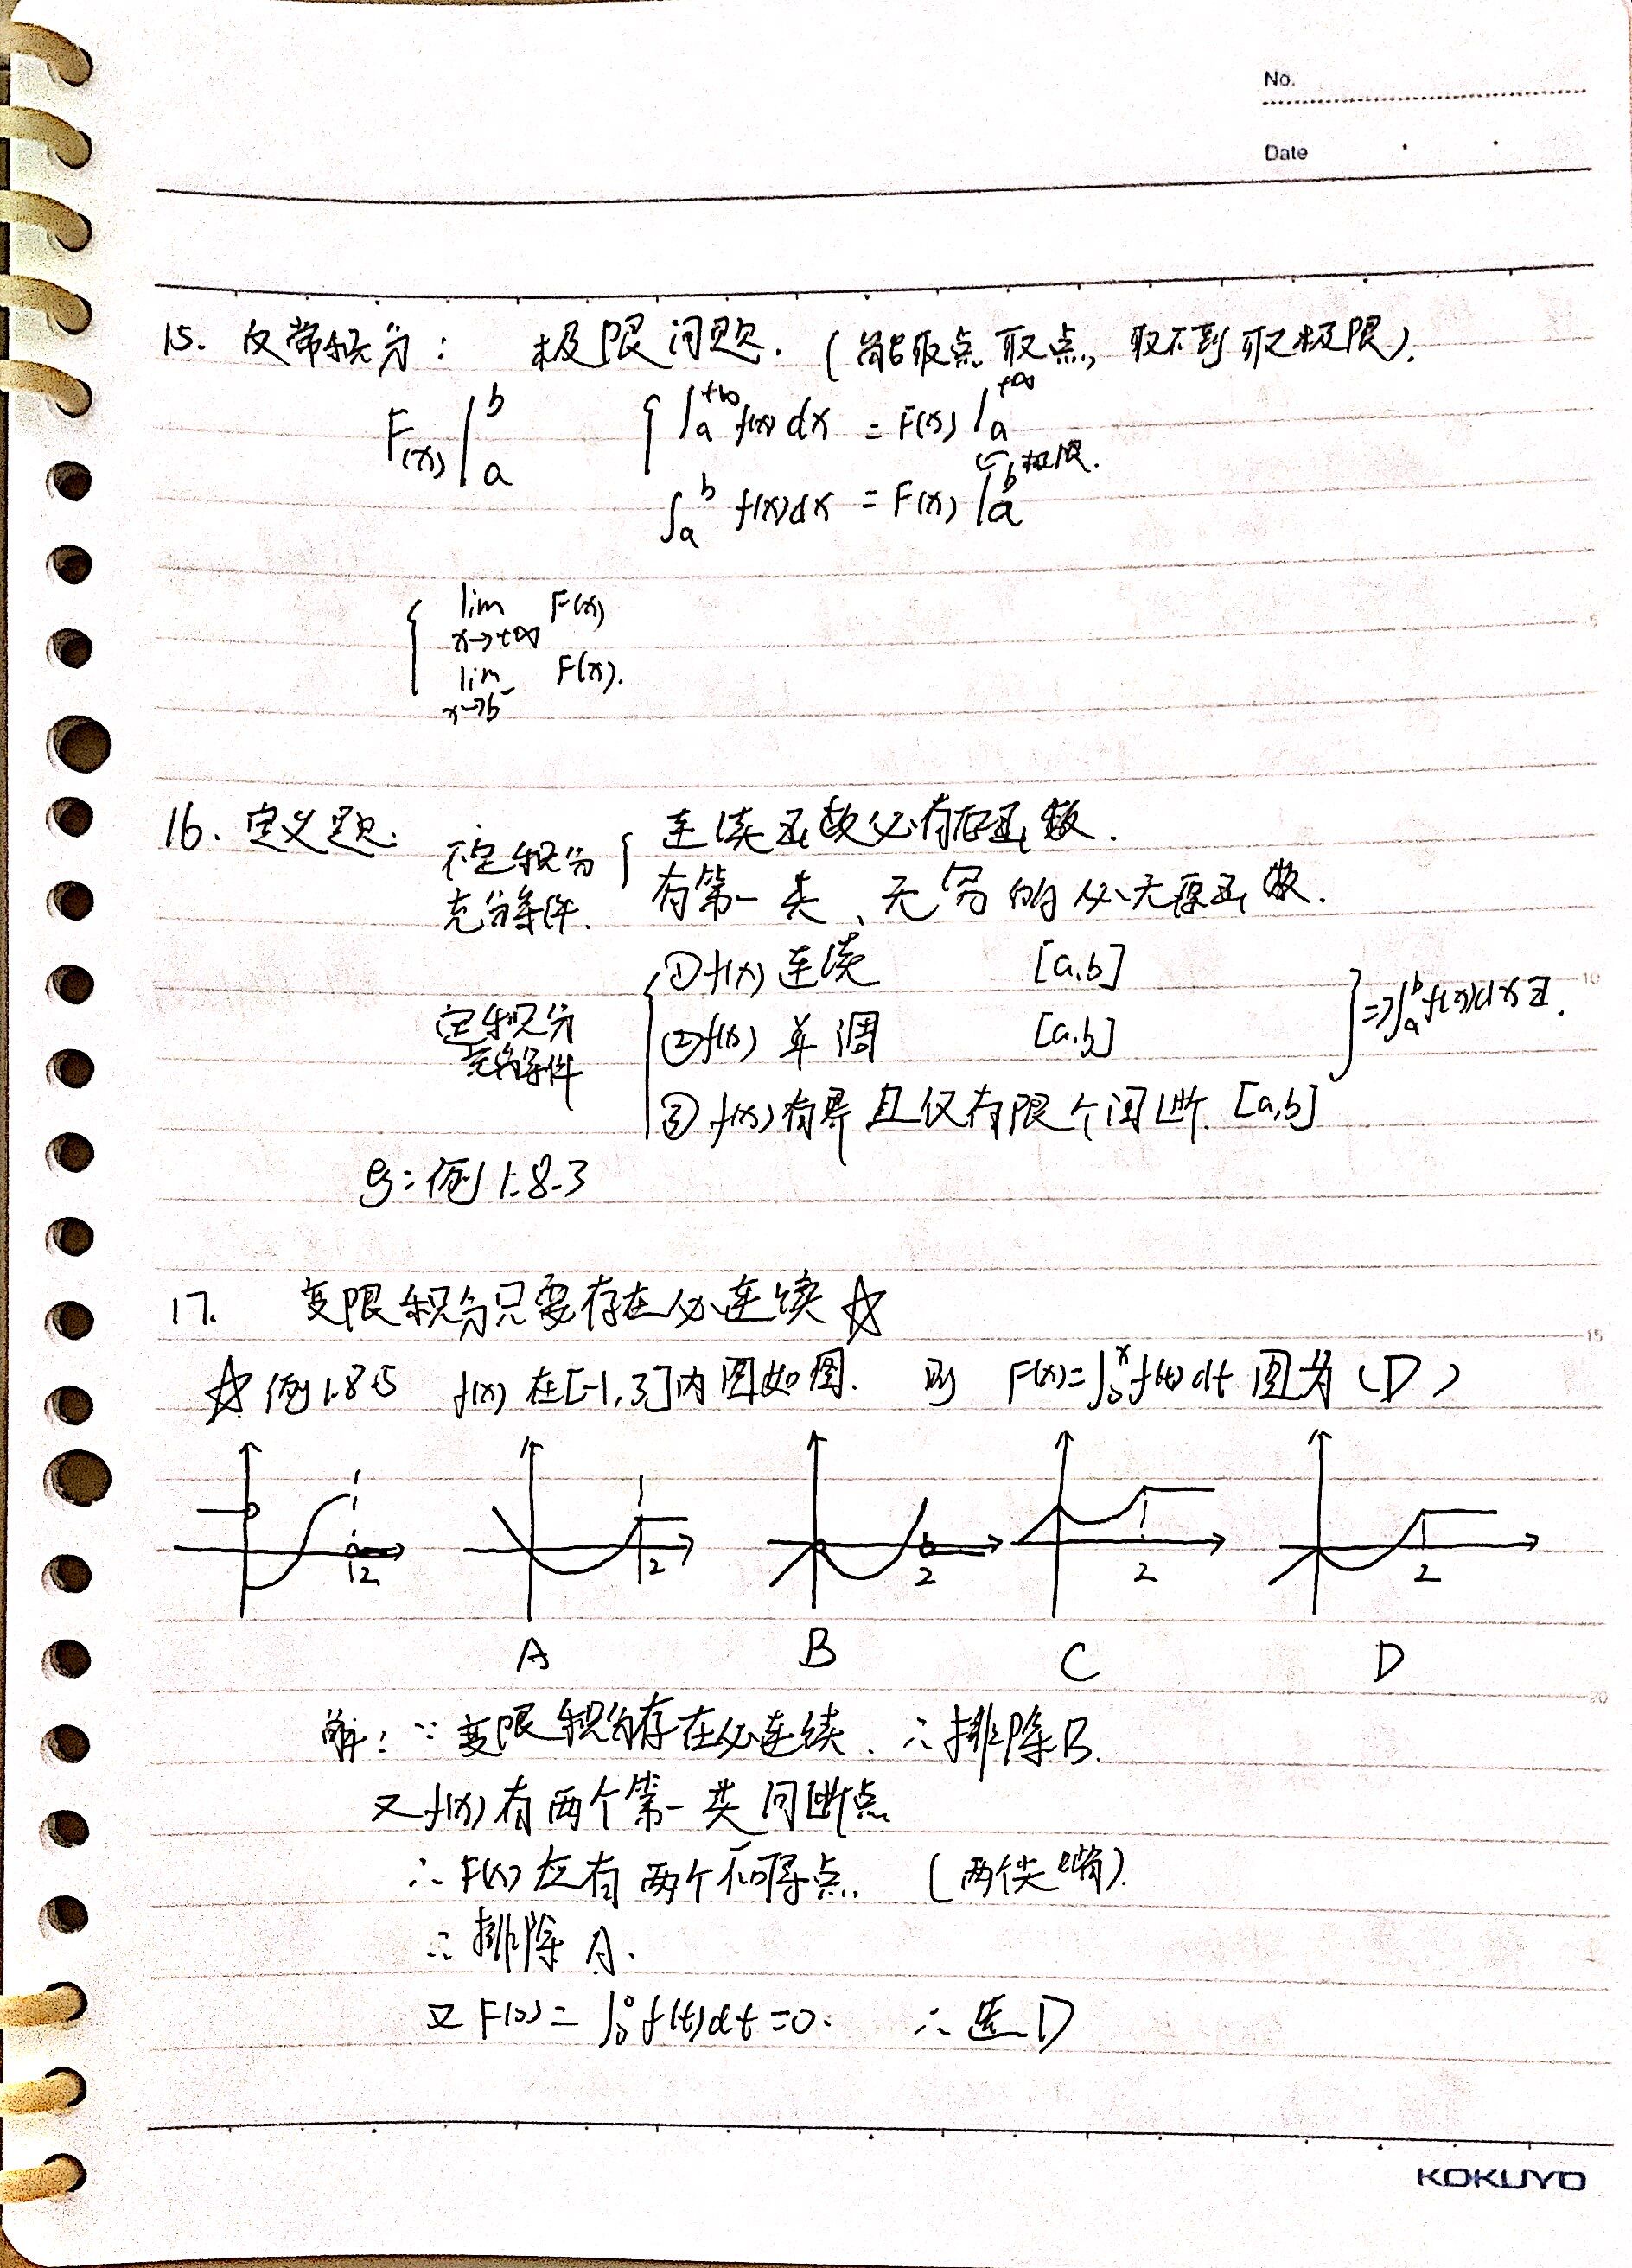 No.
Date
15. 反常积分： 极限问题.（能取点取点, 取不到取极限）.
F(x)|_a^b { ∫_a^{+∞} f(x)dx = F(x)|_a^{+∞}
极限.
∫_a^b f(x)dx = F(x)|_a^b
{ lim_{x→+∞} F(x)
lim_{x→b^-} F(x).
16. 定义题: 不定积分充分条件. { 连续函数必有原函数.
有第一类、无穷的必无原函数.
定积分充分条件 { ①f(x) 连续 [a,b]
②f(x) 单调 [a,b] } => ∫_a^b f(x)dx ∃.
③f(x)有界且仅有限个间断. [a,b]
eg: 例1.8.3
17. 变限积分只要存在必连续 ☆
☆ 例1.8.5 f(x) 在[-1,3]内图如图. 则 F(x)=∫_0^x f(t)dt 图为（D）
2 2 2 2 2
A B C D
解: ∵变限积分存在必连续. ∴排除B.
又f(x)有两个第一类间断点
∴F(x)应有两个不可导点. （两个尖嘴）.
∴排除A.
又F(0)=∫_0^0 f(t)dt=0. ∴选D
5
10
15
20
KOKUYO